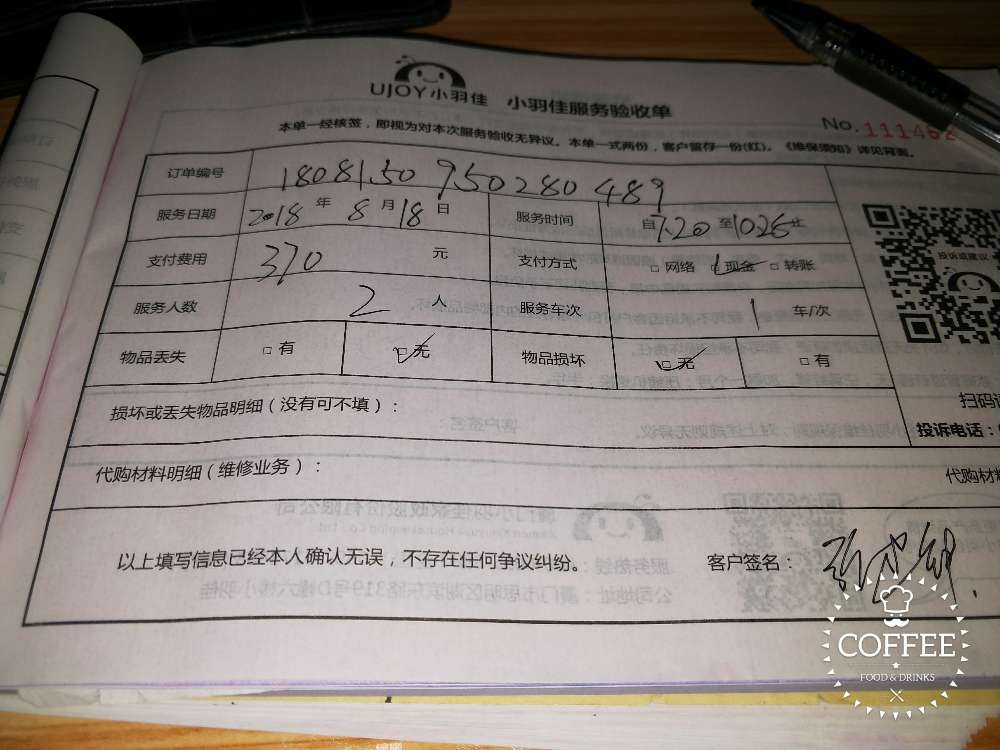 UJOY小羽佳 小羽佳服务验收单
No.
本单一经核签，即视为对本次服务验收无异议。本单一式两份，客户留存一份(红)。《维保须知》详见背面。
订单编号 1808150950280489
服务日期 2018 年 8 月 18 日 服务时间 自 7.20 至 10.26 止
支付费用 370 元 支付方式 □ 网络 现金 □ 转账
投诉或建议
服务人数 2 人 服务车次 1 车/次
物品丢失 □ 有 无 物品损坏 □ 无 □ 有
损坏或丢失物品明细（没有可不填）：
扫码
投诉电话：
代购材料明细（维修业务）：
代购材
以上填写信息已经本人确认无误，不存在任何争议纠纷。 客户签名：
COFFEE
FOOD & DRINKS